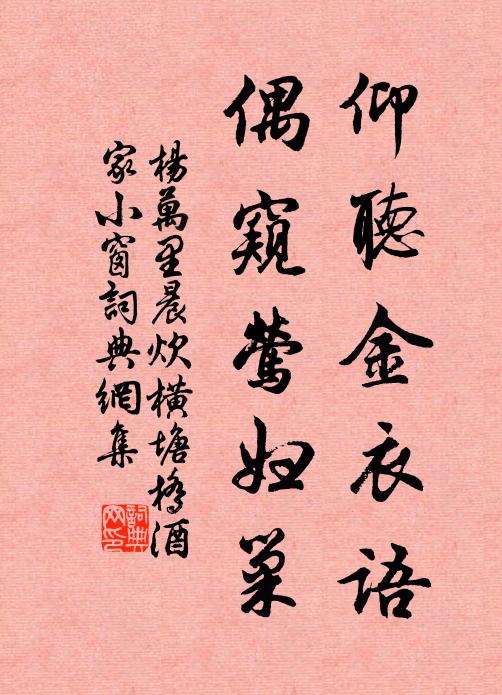 仰聽金衣語
偶窺鶯婦巢
楊萬里晨炊橫塘橋酒
家小窗詞典網集
詞典
网印